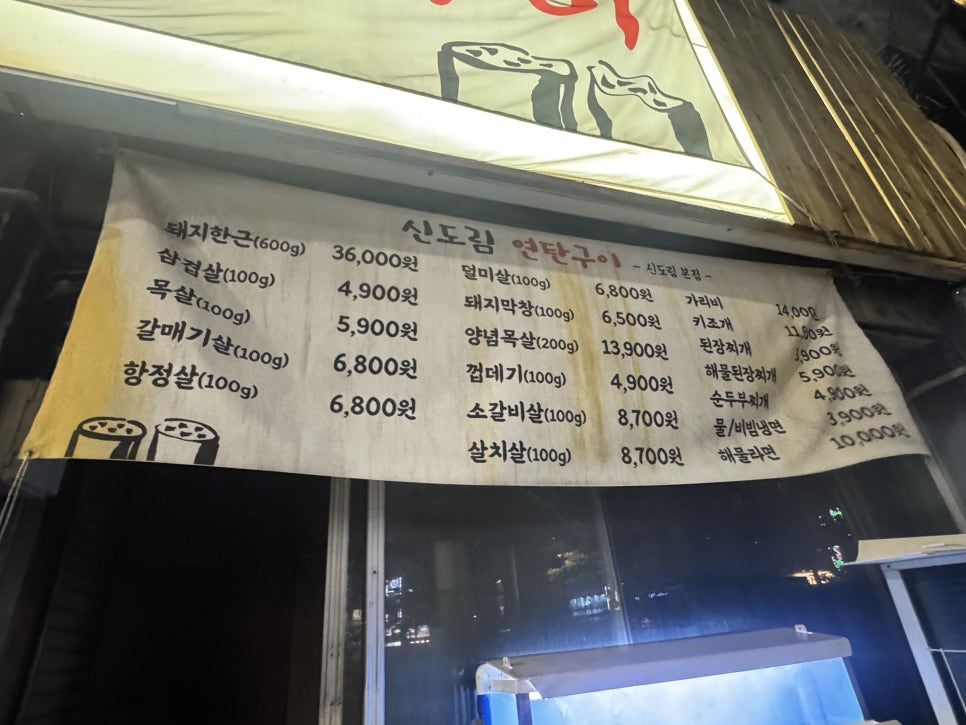 신도림 연탄구이 - 신도림 본점 -
돼지한근(600g) 36,000원
삼겹살(100g) 4,900원
목살(100g) 5,900원
갈매기살(100g) 6,800원
항정살(100g) 6,800원
덜미살(100g) 6,800원
돼지막창(100g) 6,500원
양념목살(200g) 13,900원
껍데기(100g) 4,900원
소갈비살(100g) 8,700원
살치살(100g) 8,700원
가리비 14,000원
키조개
된장찌개
해물된장찌개 5,900원
순두부찌개 4,900원
물/비빔냉면 3,900원
해물라면 10,000원